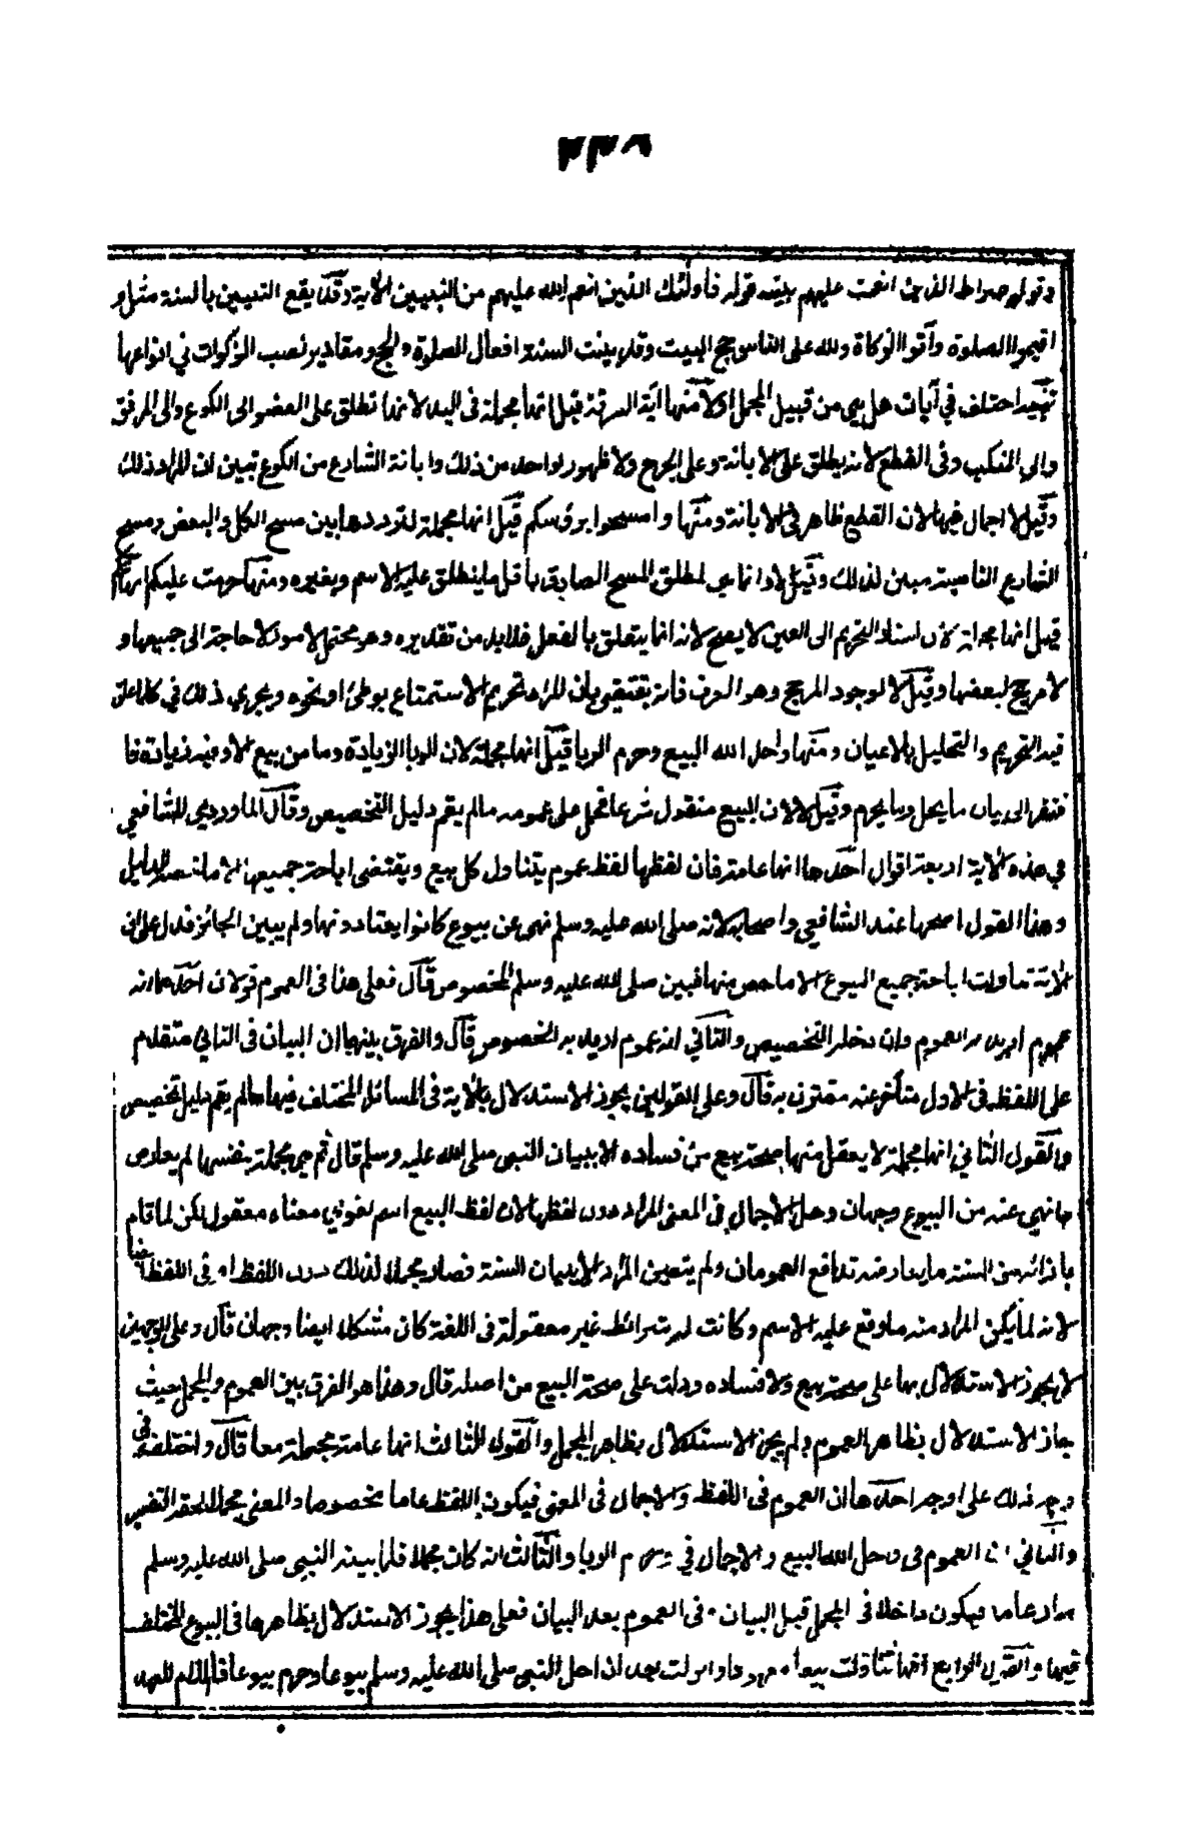 وقوله صراط الذين انعمت عليهم بينه قوله فأولئك الذين انعم الله عليهم من النبيين الآية وقد يقع التبيين بالسنة مثل و
اقيموا الصلوة وآتوا الزكاة ولله على الناس حج البيت وقد بينت السنة افعال الصلوة والحج ومقادير نصب الزكوات في انواعها
تنبيه اختلف في آيات هل هي من قبيل المجمل اولا منها اية السرقة قيل انها مجملة في اليد لانها تطلق على العضو الى الكوع والى المرفق
والى المنكب وفى القطع لانه يطلق على الابانة وعلى الجرح ولا ظهور لواحد من ذلك وابانة الشارع من الكوع تبين ان المراد ذلك
وقيل لا اجمال فيها لان القطع ظاهر فى الابانة ومنها وامسحوا برؤسكم قيل انها مجملة لترددها بين مسح الكل والبعض ومسح
الشارع الناصية مبين لذلك وقيل لا وانما هي لمطلق المسح الصادق باقل ما ينطلق عليه الاسم وبغيره ومنها حرمت عليكم امهاتكم
قيل انها مجملة لان اسناد التحريم الى العين لا يصح لانه انما يتعلق بالفعل فلابد من تقديره وهو محتمل لامور لا حاجة الى جميعها و
لا مرجح لبعضها وقيل لا لوجود المرجح وهو العرف فانه يقتضى بان المراد تحريم الاستمتاع بوطئ او نحوه ويجري ذلك في كلما علق
فيه التحريم والتحليل بالاعيان ومنها واحل الله البيع وحرم الربا قيل انها مجملة لان الربا الزيادة وما من بيع الا وفيه زيادة فا
فتقر الى بيان ما يحل وما يحرم وقيل لا لان البيع منقول شرعا فحمل على عمومه مالم يقم دليل التخصيص وقال الماوردي للشافعي
في هذه الآية اربعة اقوال احدها انها عامة فان لفظها لفظ عموم يتناول كل بيع ويقتضى اباحة جميعها الا ما خصه الدليل
وهذا القول اصحها عند الشافعي واصحابه لانه صلى الله عليه وسلم نهى عن بيوع كانوا يعتادونها ولم يبين الجائز فدل على ان
الآية تناولت اباحة جميع البيوع الا ما خص منها فبين صلى الله عليه وسلم المخصوص قال فعلى هذا فى العموم قولان احدهما انه
عموم اريد به العموم وان دخله التخصيص والثاني انه عموم اريد به الخصوص قال والفرق بينهما ان البيان فى الثاني متقدم
على اللفظ فى الاول متأخر عنه مقترن به قال وعلى القولين يجوز الاستدلال بالآية فى المسائل المختلف فيها مالم يقم دليل تخصيص
والقول الثاني انها مجملة لا يعقل منها صحة بيع من فساده الا ببيان النبى صلى الله عليه وسلم قال ثم هي مجملة بنفسها ام بعارض
ما نهي عنه من البيوع وجهان وهل الاجمال في المعنى المراد دون لفظها لان لفظ البيع اسم لغوي معناه معقول لكن لما قام
بازائه من السنة ما يعارضه تدافع العمومان ولم يتعين المراد الا ببيان السنة فصار مجملا لذلك دون اللفظ او فى اللفظ ايضا
لانه لما يكن المراد منه ما وقع عليه الاسم وكانت له شرائط غير معقولة فى اللغة كان مشكلا ايضا وجهان قال وعلى الوجهين
لا يجوز الاستدلال بها على صحة بيع ولا فساده ودلت على صحة البيع من اصله قال وهذا هو الفرق بين العموم والمجمل حيث
جاز الاستدلال بظاهر العموم ولم يجز الاستدلال بظاهر المجمل والقول الثالث انها عامة مجملة معا قال واختلف في
وجه ذلك على اوجه احدها ان العموم فى اللفظ والاجمال فى المعنى فيكون اللفظ عاما مخصوصا والمعنى مجملا لحقه التفسير
والثاني ان العموم فى واحل الله البيع والاجمال في وحرم الربا والثالث انه كان مجملا فلما بينه النبي صلى الله عليه وسلم
صار عاما فيكون داخلا فى المجمل قبل البيان وفى العموم بعد البيان فعلى هذا يجوز الاستدلال بظاهرها فى البيوع المختلف
فيها والقول الرابع انها تناولت بيعا معهودا ونزلت بعد ان احل النبى صلى الله عليه وسلم بيوعا وحرم بيوعا فاللام للعهد